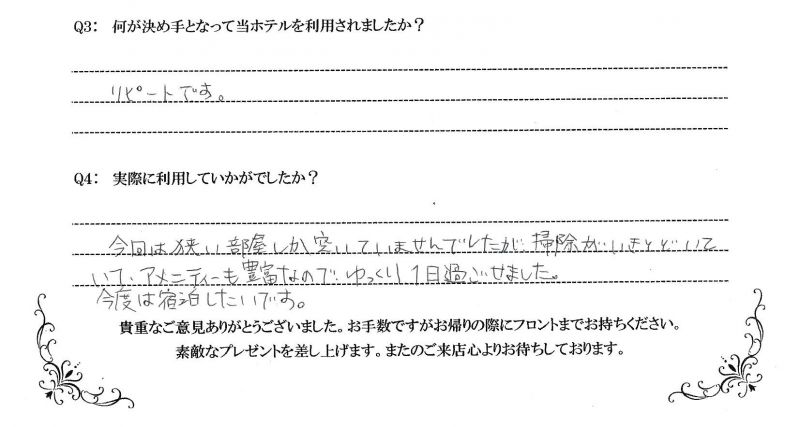 Q3: 何が決め手となって当ホテルを利用されましたか？
リピートです。
Q4: 実際に利用していかがでしたか？
今回は狭い部屋しか空いていませんでしたが、掃除がいきとどいて
いて、アメニティーも豊富なので ゆっくり1日過ごせました。
今度は宿泊したいです。
貴重なご意見ありがとうございました。お手数ですがお帰りの際にフロントまでお持ちください。
素敵なプレゼントを差し上げます。またのご来店心よりお待ちしております。